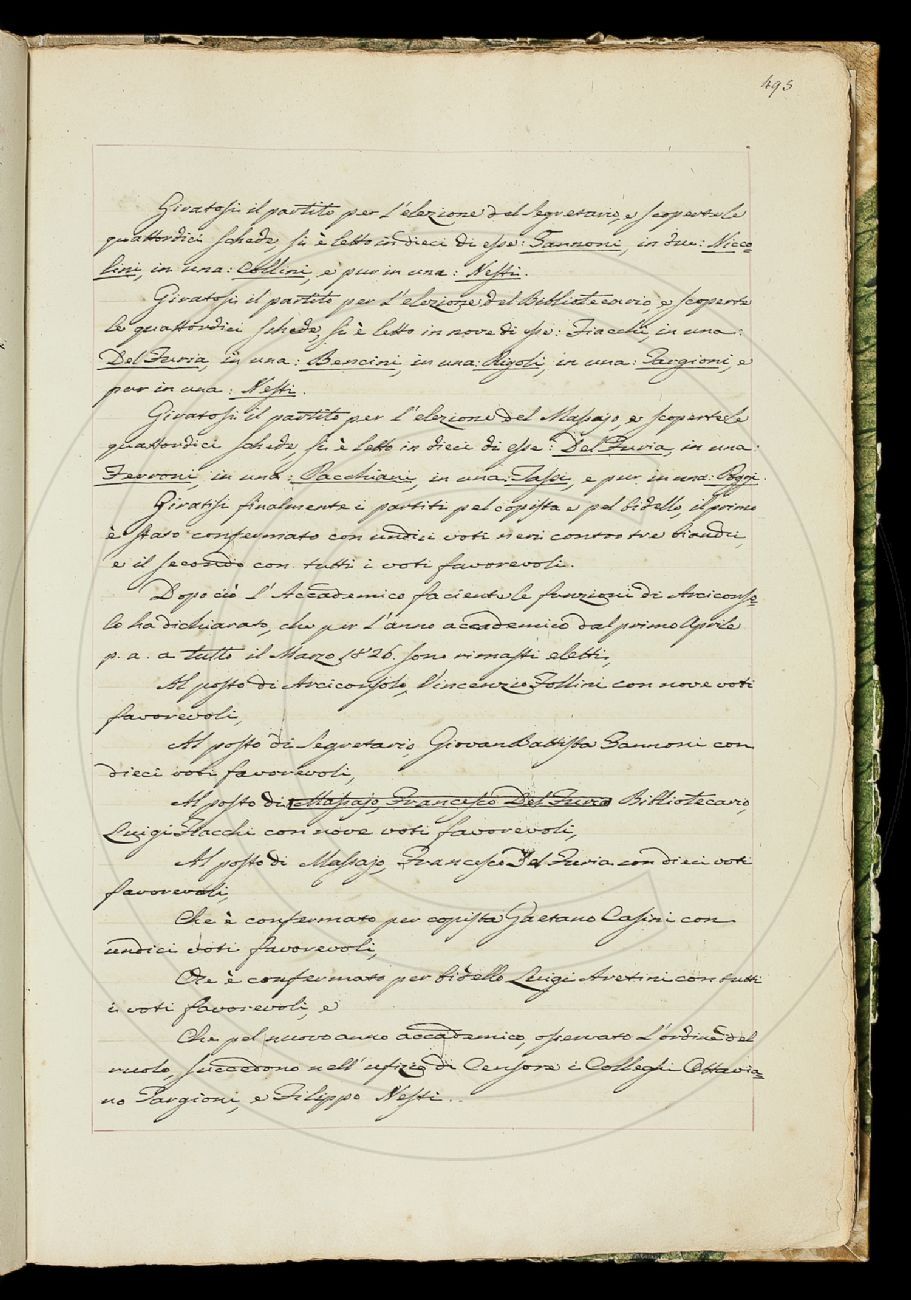 495
Giratosi il partito per l'elezione del Segretario, e scoperte le
quattordici schede, si è letto in dieci di esse: Zannoni, in due: Nicco=
lini, in una: Collini, e pur in una: Nesti.
Giratosi il partito per l'elezione del Bibliotecario, e scoperte
le quattordici schede, si è letto in nove di esse: Fiacchi, in una:
Del Furia, in una: Bencini, in una: Rigoli, in una: Targioni, e
pur in una: Nesti.
Giratosi il partito per l'elezione del Massajo, e scoperte le
quattordici schede, si è letto in dieci di esse: Del Furia, in una:
Ferroni, in una: Pacchiani, in una: Tassi, e pur in una: Poggi.
Giratisi finalmente i partiti pel copista e pel bidello, il primo
è stato confermato con undici voti neri contro tre bianchi,
e il secondo con tutti i voti favorevoli.
Dopo ciò l'Accademico facente le funzioni di Arciconso=
lo ha dichiarato, che per l'anno accademico dal primo Aprile
p. a. a tutto il Marzo 1826. sono rimasti eletti,
Al posto di Arciconsolo, Vincenzio Follini con nove voti
favorevoli,
Al posto di Segretario, Giovan Battista Zannoni con
dieci voti favorevoli,
Al posto di Massajo, Francesco Del Furia Bibliotecario,
Luigi Fiacchi con nove voti favorevoli,
Al posto di Massajo, Francesco Del Furia con dieci voti
favorevoli,
Che è confermato per copista Gaetano Casini con
undici voti favorevoli,
Che è confermato per bidello Luigi Aretini con tutti
i voti favorevoli, e
Che pel nuovo anno accademico, osservato l'ordine del
ruolo, succedono nell'ufizio di Censore i Colleghi Ottavia=
no Targioni, e Filippo Nesti..